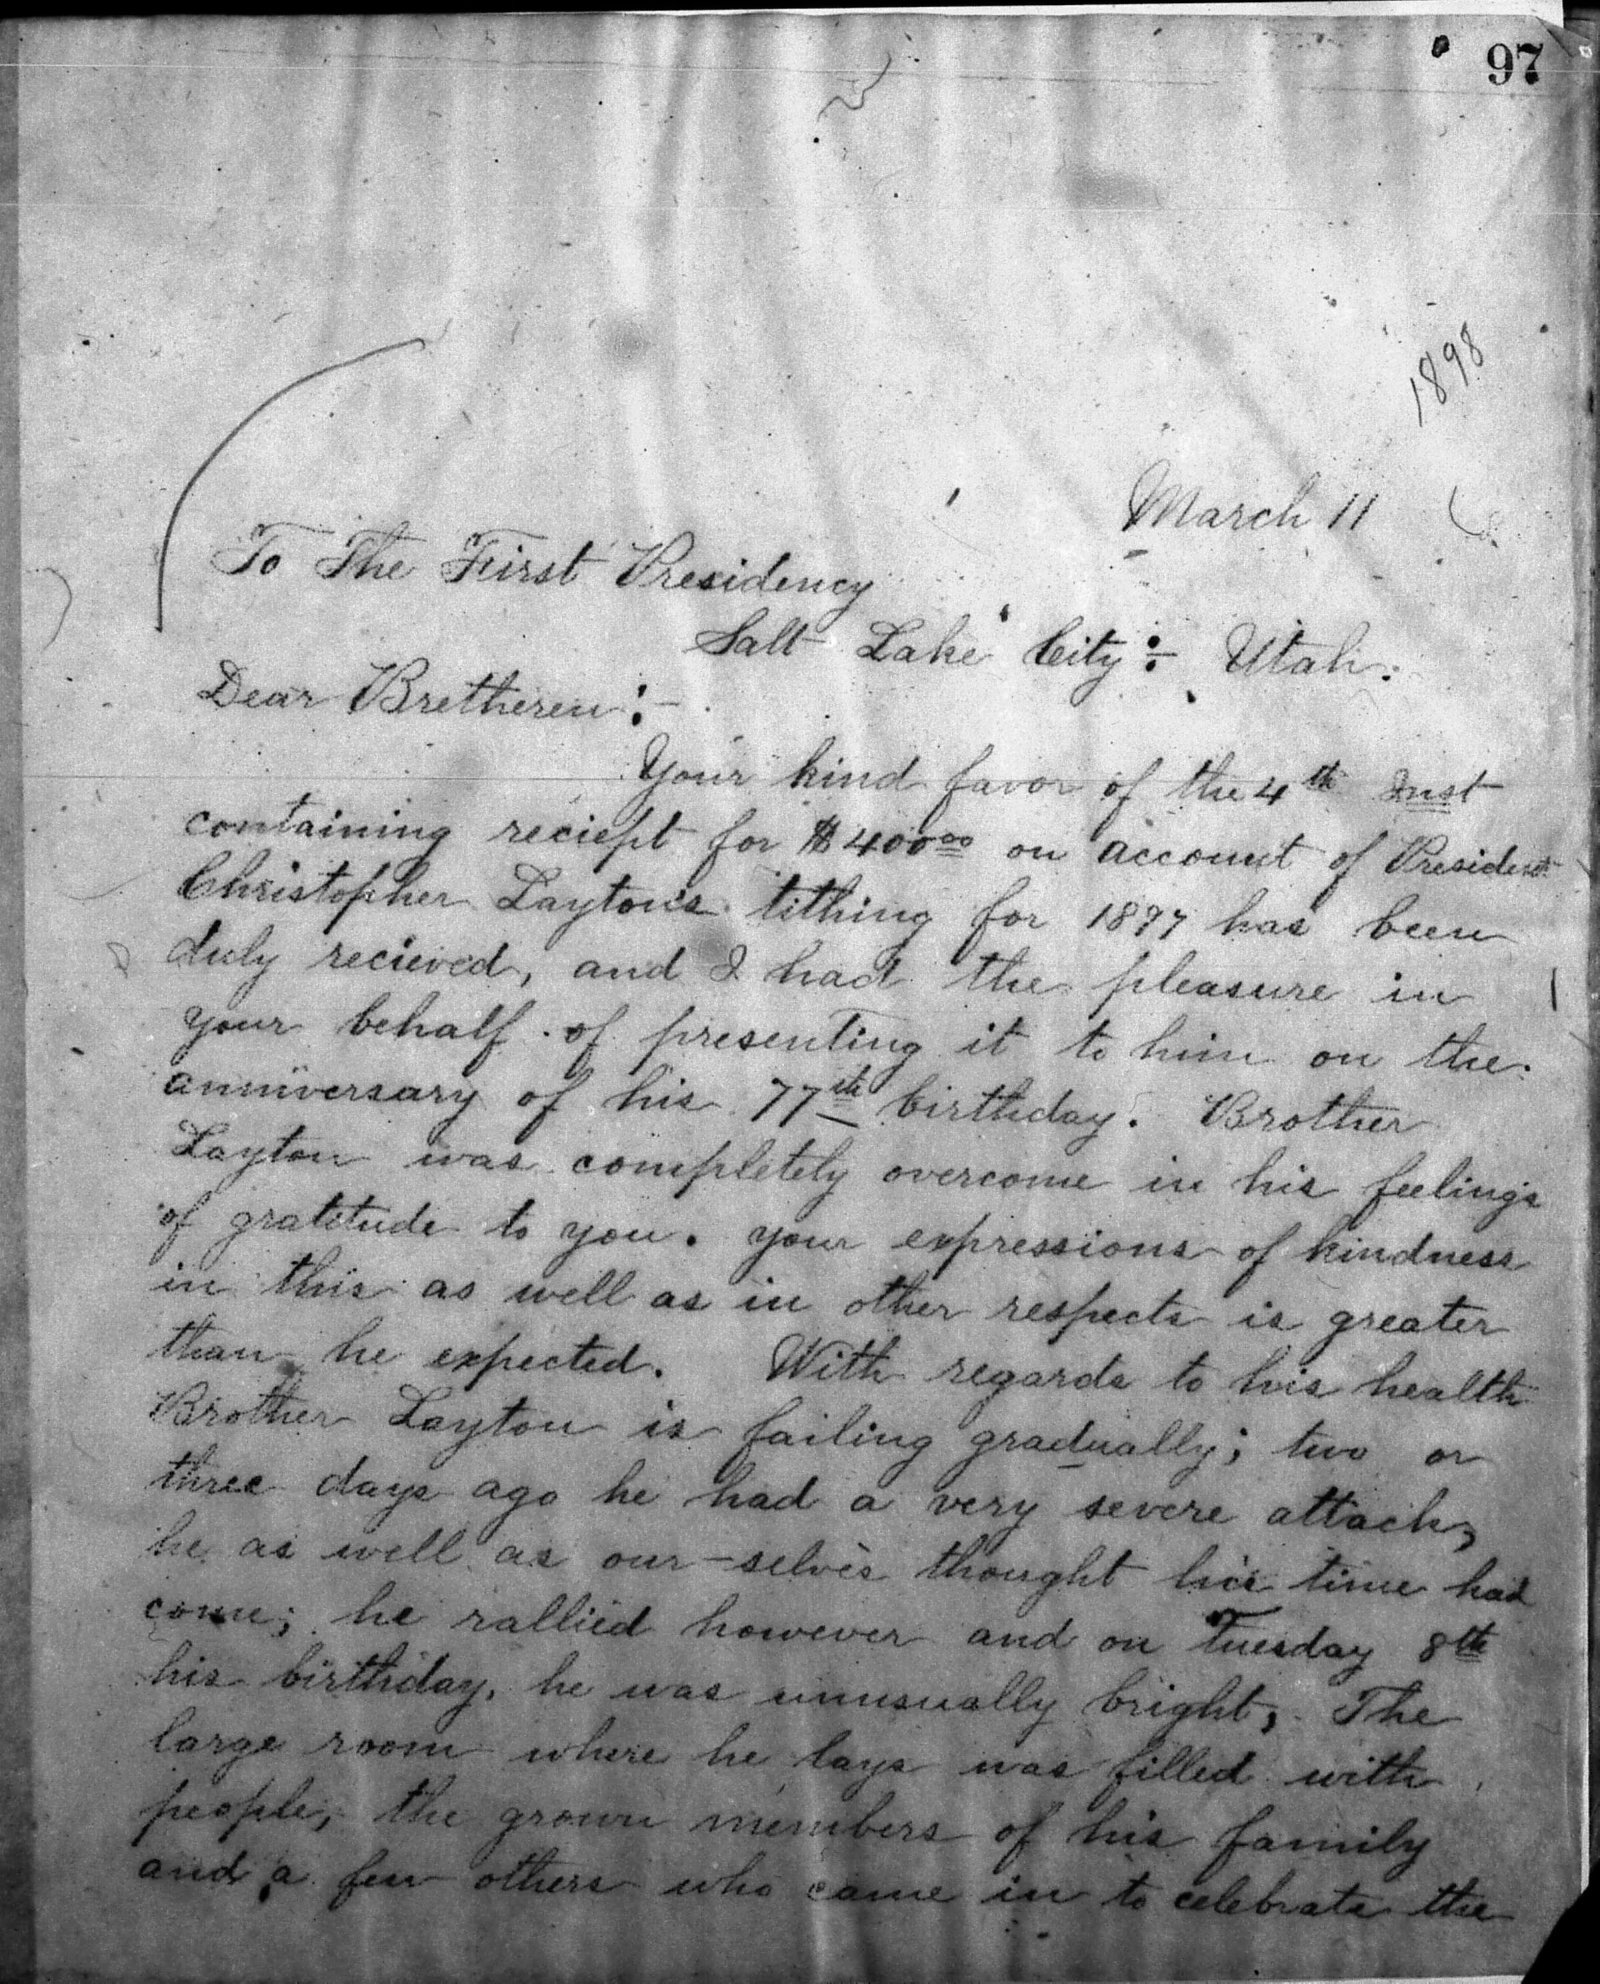 97
1898
March 11
To The First Presidency
Salt Lake City:- Utah.
Dear Bretheren:-
Your kind favor of the 4th Inst
containing reciept for $400 00 on account of President
Christopher Layton's tithing for 1897 has been
duly recieved, and I had the pleasure in
your behalf of presenting it to him on the
anniversary of his 77th birthday. Brother
Layton was completely overcome in his feelings
of gratitude to you. your expressions of kindness
in this as well as in other respects is greater
than he expected. With regards to his health
Brother Layton is failing gradually; two or
three days ago he had a very severe attack,
he as well as our-selves thought his time had
come; he rallied however and on Tuesday 8th
his birthday, he was unusually bright, The
large room where he lays was filled with
people, the grown members of his family
and a few others who came in to celebrate the